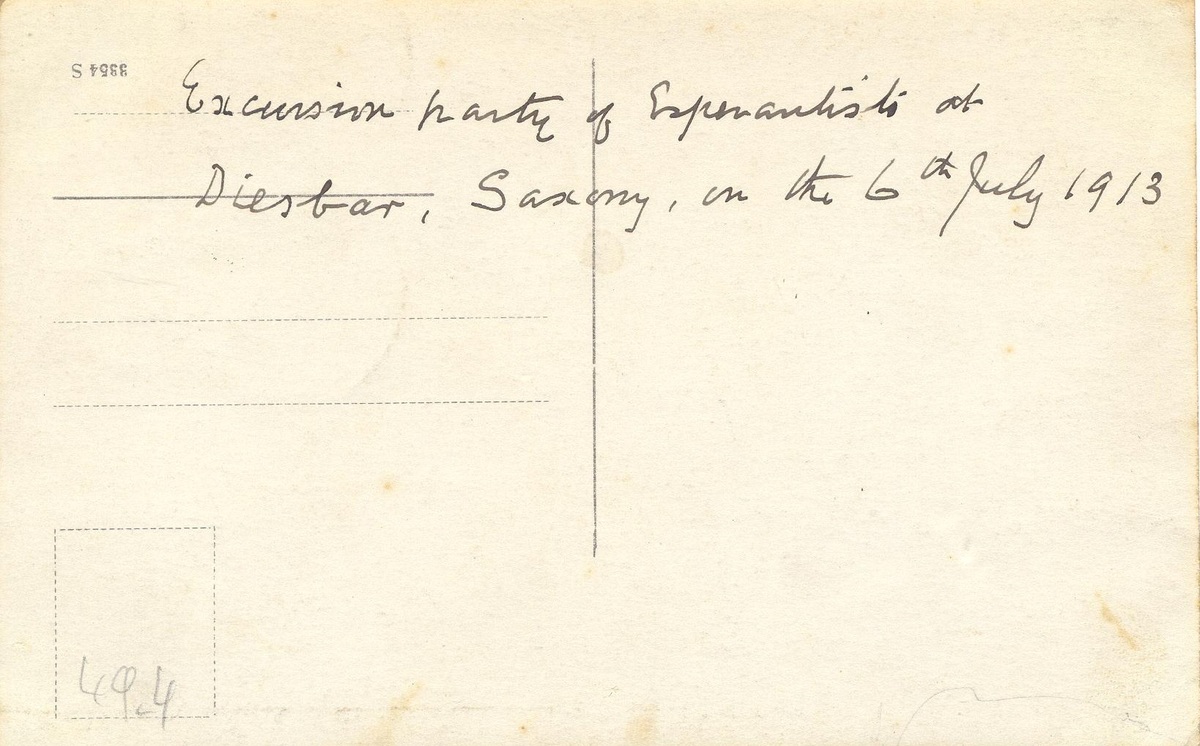 3354 S
Excursion party of Esperantists at
Diesbar, Saxony, on the 6th July 1913
49.4